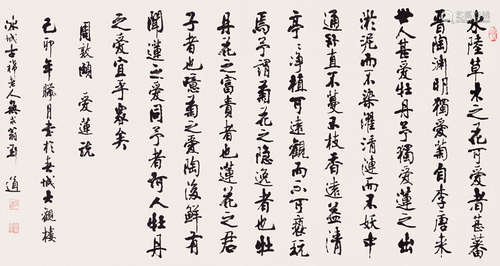 水陸草木之花可愛者甚蕃
晉陶淵明獨愛菊自李唐来
世人甚愛牡丹予獨愛蓮之出
淤泥而不染濯清漣而不妖中
通外直不蔓不枝香遠益清
亭亭淨植可遠觀而不可褻玩
焉予謂菊花之隐逸者也牡
丹花之富貴者也蓮花之君
子者也噫菊之愛陶後鮮有
聞蓮之愛同予者何人牡丹
之愛宜乎衆矣
周敦頤 愛蓮說
己卯年 月書於春城大觀樓
冰城古 人